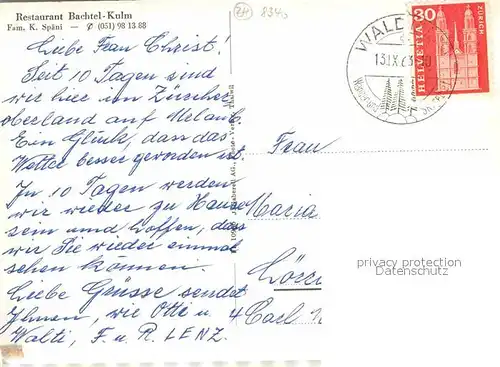 Restaurant Bachtel-Kulm
Fam. K. Späni — ✆ (051) 98 13 88
834
Liebe Frau Christ!
Seit 10 Tagen sind
wir hier im Zürcher
oberland auf Urlaub.
Ein Glück, dass das
Wetter besser geworden ist.
In 10 Tagen werden
wir wieder zu Hause
sein und hoffen, dass
wir Sie wieder einmal
sehen können.
Liebe Grüsse sendet
Ihnen, wie Otti u.
Walti, F. u. R. LENZ.
Frau
Maria
4
Carl
30
HELVETIA
ZÜRICH
WALD
13.IX.63
privacy protection
Datenschutz